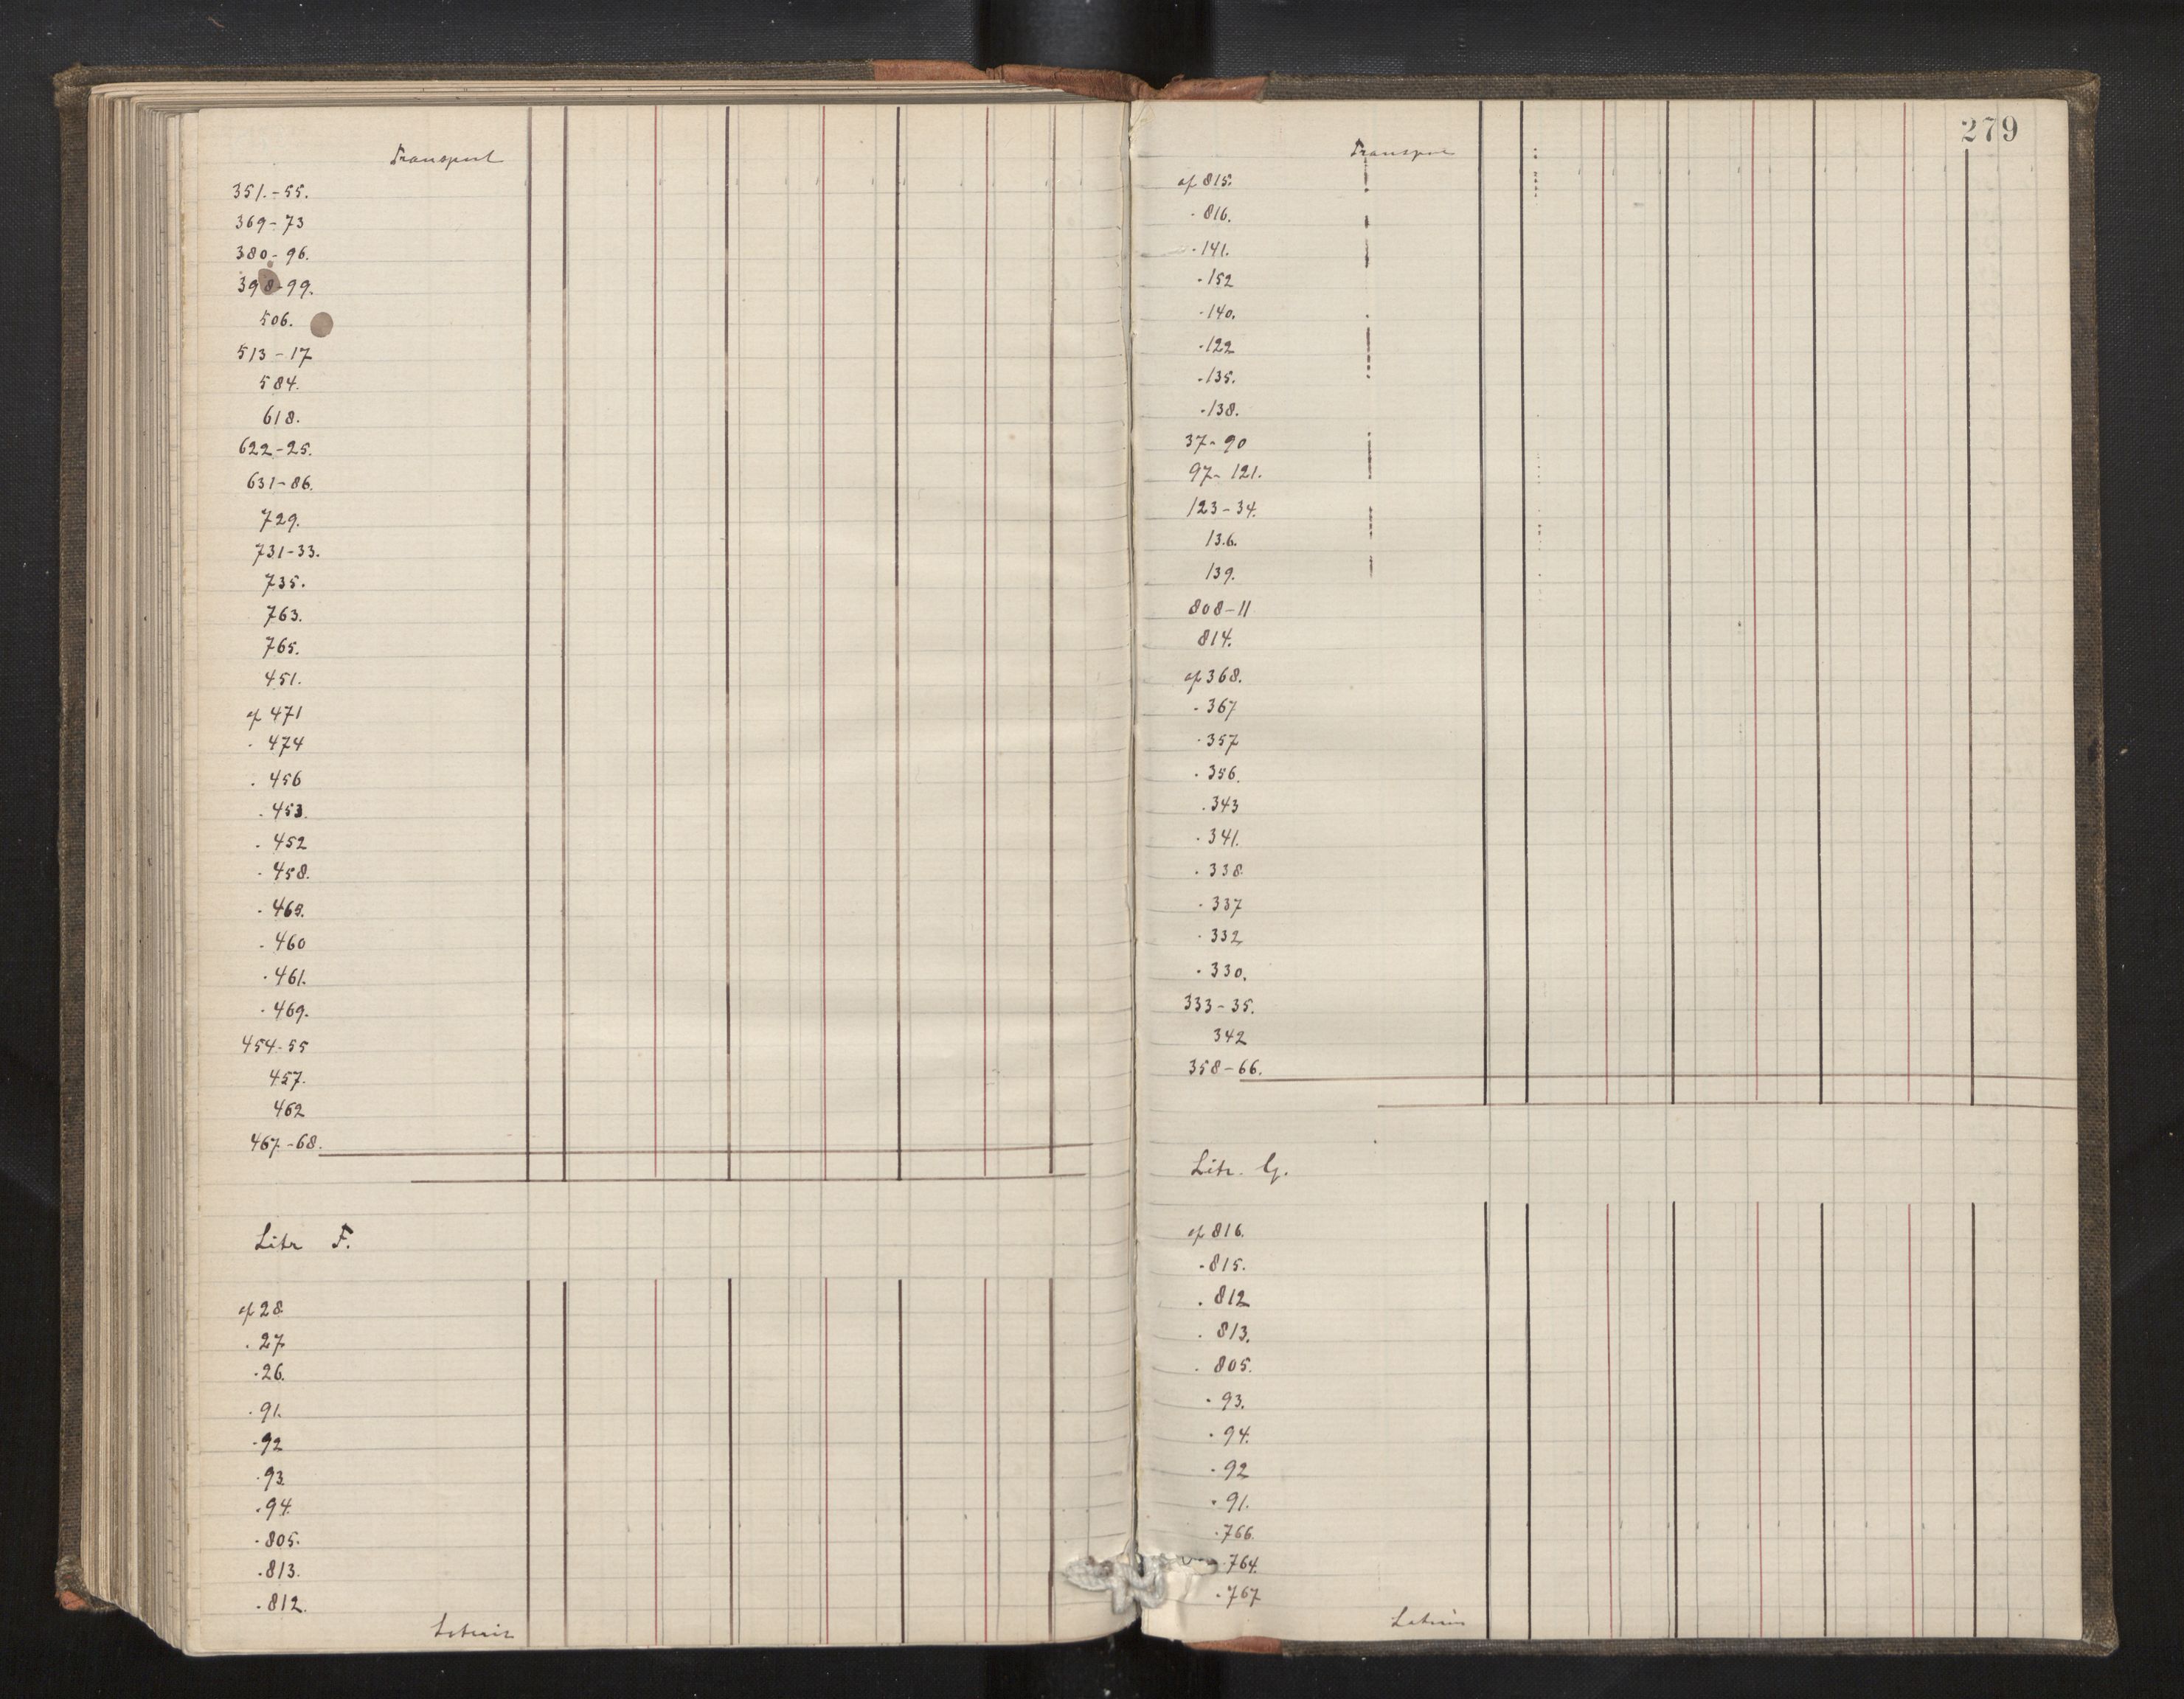 Transport
351.-55.
369-73
380-96.
398-99.
506.
513-17
584.
618.
622-25.
631-86.
729.
731-33.
735.
763.
765.
451.
af 471
. 474
. 456
. 453.
. 452
. 458.
. 465.
. 460
. 461.
. 469.
454-55
457.
462
467-68.
Litr F.
af 28
. 27
. 26.
. 91.
. 92
. 93
. 94.
. 805.
. 813.
. 812.
Latuis
279
Transport
af 815.
. 816.
. 141.
. 152
. 140.
. 122
. 135.
. 138.
37-90
97-121.
123-34.
136.
139.
808-11
814.
af 368.
. 367
. 357
. 356.
. 343
. 341.
. 338
. 337
. 332
. 330.
333-35.
342
358-66.
Litr. G.
af 816.
. 815.
. 812
. 813.
. 805.
. 93.
. 94.
. 92
. 91.
. 766.
. 764.
. 767
Latuis